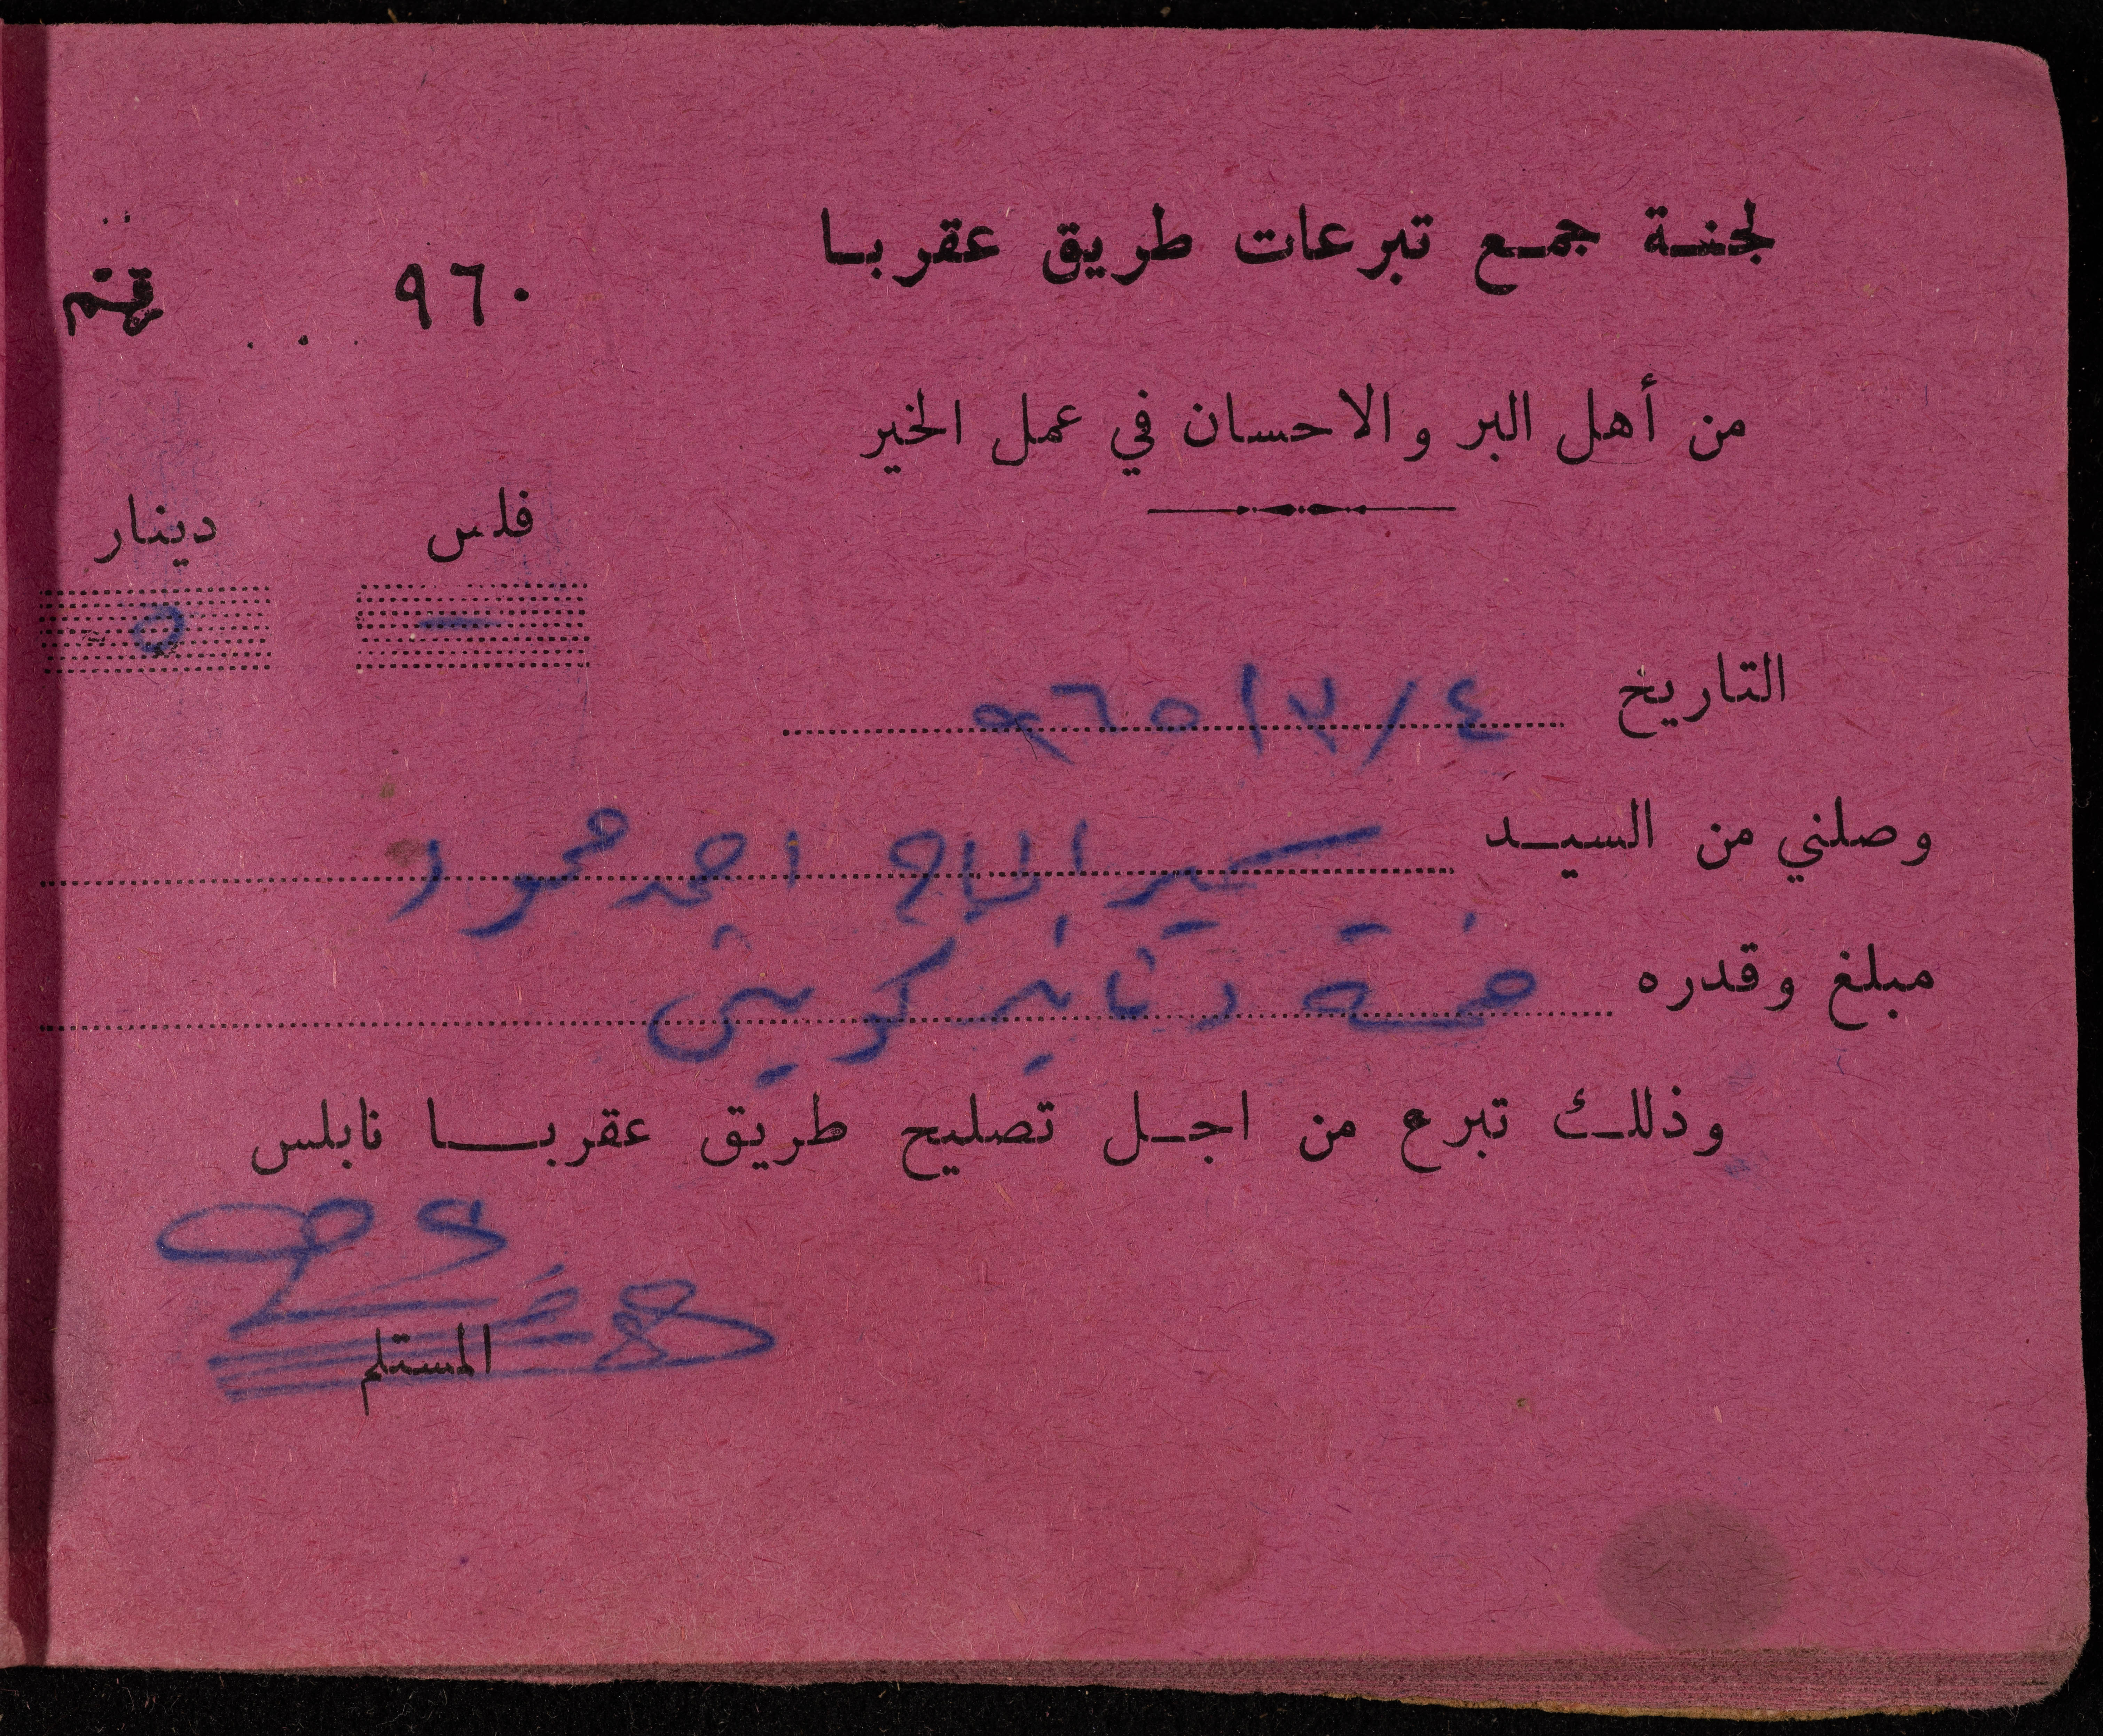 لجنة جمع تبرعات طريق عقربا
٩٦٠
من أهل البر والاحسان في عمل الخير
فلس دينار
— ٥
التاريخ ٤/٣/٩٦٥
وصلني من السيد الحاج احمد محمود
مبلغ وقدره خمسة دنانير كويتي
وذلك تبرع من اجل تصليح طريق عقربا نابلس
المستلم